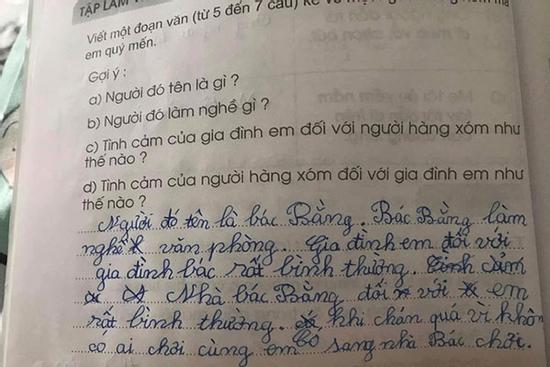 TẬP LÀM
Viết một đoạn văn (từ 5 đến 7 câu) kể về
em quý mến.
Gợi ý :
a) Người đó tên là gì ?
b) Người đó làm nghề gì ?
c) Tình cảm của gia đình em đối với người hàng xóm như
thế nào ?
d) Tình cảm của người hàng xóm đối với gia đình em như
thế nào ?
Người đó tên là bác Bằng. Bác Bằng làm
nghề văn phòng. Gia đình em đối với
gia đình bác rất bình thường.
Nhà bác Bằng đối với em
rất bình thường. khi chán quá vì khôn
có ai chơi cùng em sang nhà Bác chơi.